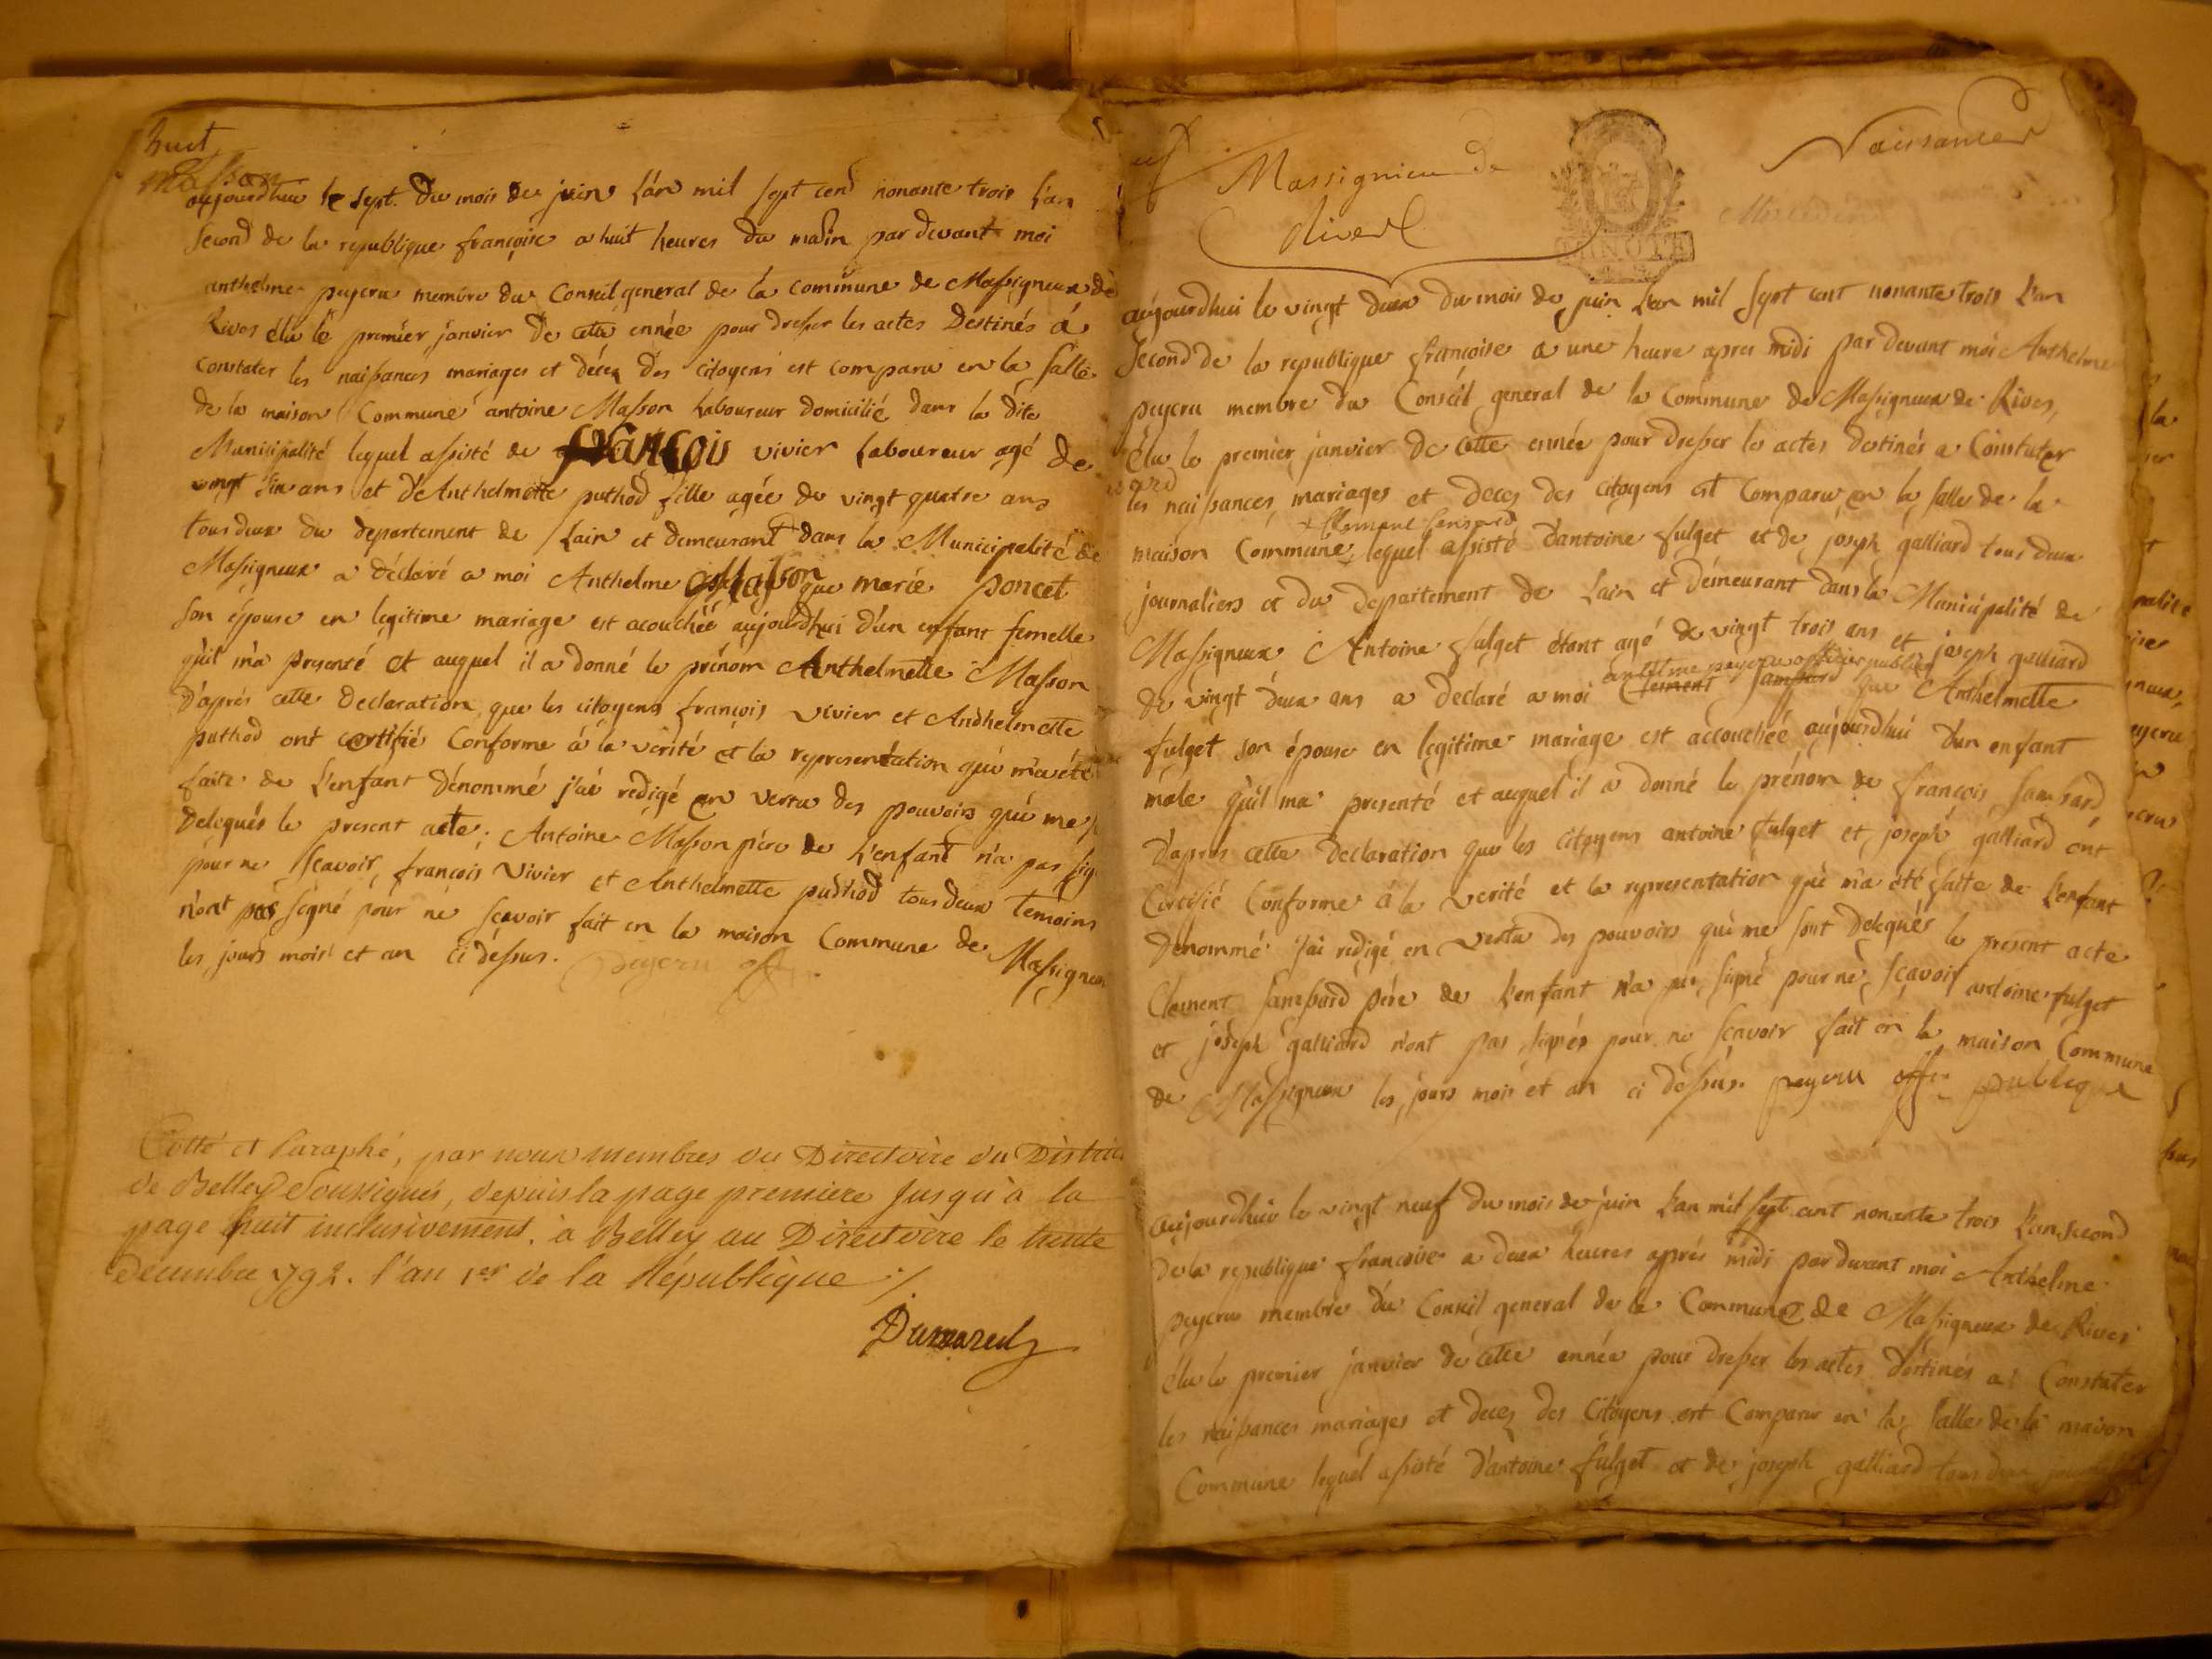 huit
Masson
aujourdhui le sept du mois de juin L'an mil sept cend nonante trois L'an
second de la republique françoise a huit heures du matin par devant moi
anthelme peycru membre du Conseil general de la commune de Massigneux de
Rives élu le premier janvier de cette ennée pour dresser les actes Destinés á
constater les naissances mariages et décez des citoyens est comparu en la salle
de la maison Commune antoine Masson Laboureur domicilié dans la dite
Municipalité lequel assisté de françois vivier Laboureur agé de
vingt ans et de Anthelmette puthod fille agée de vingt quatre ans
tous deux du departement de Lain et demeurant dans la Municipalité de
Massigneux a déclaré a moi Anthelme que marie poncet
son épouse en legitime mariage est acouchéé aujourdhui d'un enfant femelle
qu'il m'a presenté et auquel il a donné le prénom Anthelmette Masson
D'aprés cette Declaration que les citoyens françois vivier et Andhelmette
puthod ont certifié Conforme á la verité et la representation qui m'a été
faite de L'enfant dénommé j'ai redigé en vertu des pouvoirs qui me
delegués le present acte. Antoine Masson pére de L'enfant n'a pas sig
pour ne sçavoir, françois Vivier et Anthelmette puthod tous deux temoins
n'ont pas signé pour ne scavoir fait en la maison Commune de Massigneux
les jours mois et an ci déssus. peyeru off
Cotté et Paraphé, par nous membres du Directoire du District
de Belley Soussignés, depuis la page premiere jusqu'à la
page huit inclusivement. à Belley au Directoire le trente
decembre 792. l'an 1er de la République ./.
Dumareil
neuf
Massignieu de
Rives
Naissances
aujourdhui le vingt deux du mois de juin L'an mil sept cent nonante trois L'an
second de la republique françoise a une heure apres midi par devant moi Anthelme
peycru membre du Conseil general de la Commune de Massigneux de Rives,
élu le premier janvier de cette ennée pour dresser les actes destinés a Constater
les naissances mariages et deces des citoyens est Comparu en la salle de la
maison Commune lequel assisté d'antoine fulget et de joseph galliard tous deux
journaliers et du departement de Lain et démeurant dans la Municipalité de
Massigneux Antoine fulget étant agé de vingt trois ans et joseph galliard
anthelme peyeru officier public
de vingt deux ans a declaré a moi Clement que Anthelmette
fulget son épouse en legitime mariage est accouchéé aujourdhui d'un enfant
mâle qu'il ma presenté et auquel il a donné le prénom de françois
D'aprés cette Declaration que les citoyens antoine fulget et joseph galliard ont
Certifié Conforme á la verité et la representation qui m'a été faite de L'enfant
Dénommé j'ai redigé en vertu des pouvoirs qui me sont delegués le present acte
Clement père de L'enfant n'a pas signé pour ne sçavoir antoine fulget
et joseph galliard n'ont pas signés pour ne scavoir fait en la maison Commune
de Massigneux les jours mois et an ci déssus. peyeru publique
aujourdhui le vingt neuf du mois de juin L'an mil sept cent nonante trois L'an second
de la republique françoise a deux heures aprés midi par devant moi Anthelme
peycru membre du Conseil general de la Commune de Massigneux de Rives
élu le premier janvier de cette ennée pour dresser les actes déstinés a Constater
les naissances mariages et decez des Citoyens est Comparu en la salle de la maison
Commune lequel assisté d'antoine fulget et de joseph galliard tous deux